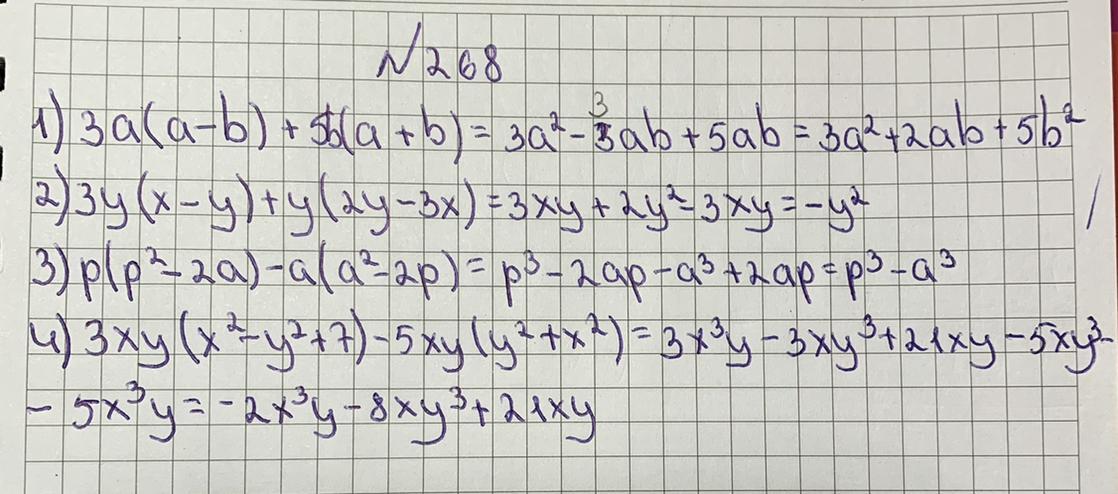 №268
1) 3a(a-b)+5b(a+b)=3a²-3ab+5ab=3a²+2ab+5b²
2) 3y(x-y)+y(2y-3x)=3xy+2y²-3xy=-y²
3) p(p²-2a)-a(a²-2p)=p³-2ap-a³+2ap=p³-a³
4) 3xy(x²-y²+7)-5xy(y²+x²)=3x³y-3xy³+21xy-5xy³-
-5x³y=-2x³y-8xy³+21xy